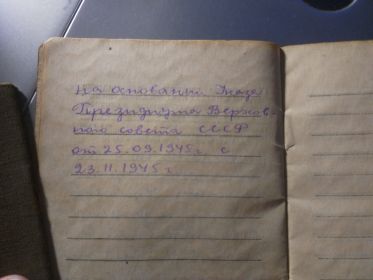 на основани Указа
Президиума Верхов-
ного совета СССР
от 25.09.1945г. с
23.11.1945г.